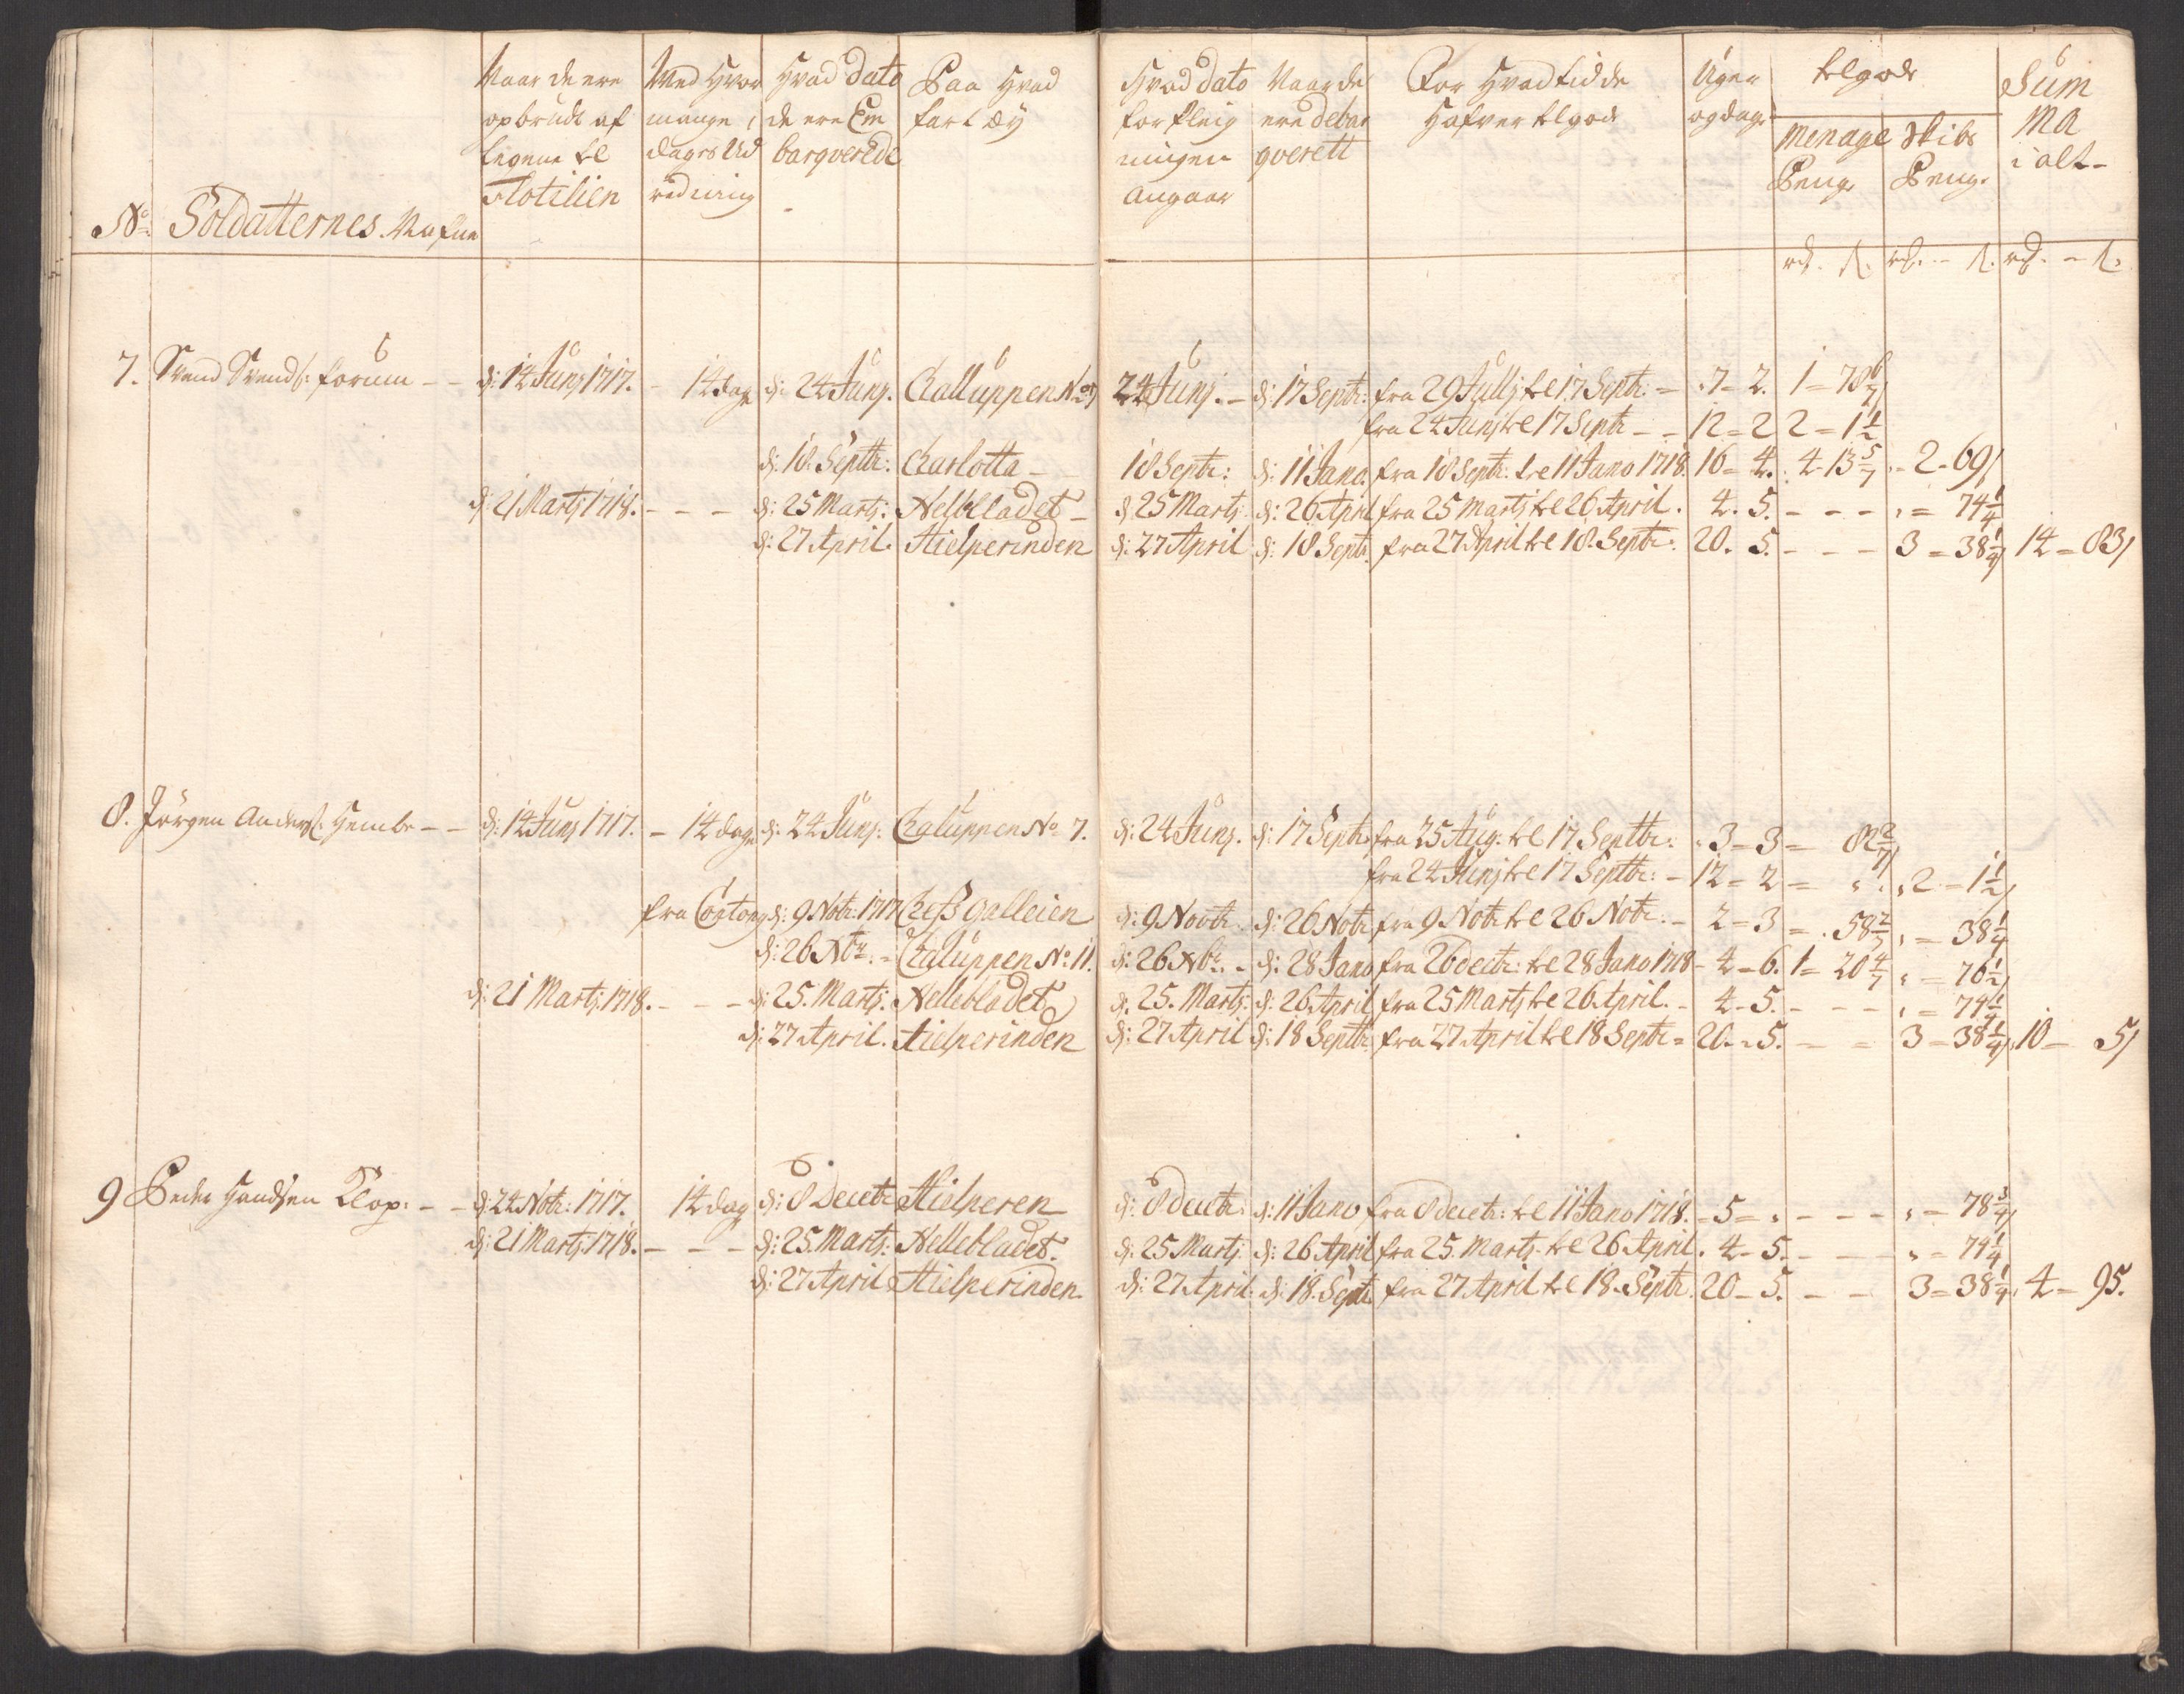 No Soldatternes Nafne
Naar de ere opbrudt af legene te Flotilien
Med Hvor mange dages Ud redning
Hvad dato de ere Em barqverede
Paa Hvad fartøy
Hvad dato forpleig ningen angaar
Naar de ere debar qverett
For Hvad tid de Hafver telgode
Uger og dage
telgode
Menage Peng. Skibs Peng.
Sum Ma i alt
rd. s. rd. - s. rd. - s.
7. Svend Svends: forum - - d: 14 Junj 1717. - 14 dage d: 24 Junj. Challuppen No 24 Junj. - d: 17 Septr: fra 29 Jullj te 17 Septr: - 7 = 2. 1 = 78 6/7
fra 24 Junj te 17 Septr - - 12 = 2 2 = 1 1/2
d: 18. Septtr: Charlotta - 18 Septr: d: 11 Jano fra 18 Septr: te 11 Jano 1718. 16 = 4. 4 - 13 5/7 - 2 - 69
d: 21 Martj 1718. - - - d: 25 Martj: Nelbladet - d 25 Martj d: 26 April fra 25 Martj te 26 April. 4. 5. - - - " = 74 1/4
d: 27 April. Hielperinden d: 27 April d: 18 Septr. fra 27 April te 18. Septr: 20. 5. - - - 3 = 38 1/4 14 = 83
8. Jörgen Anders: Hembr - - d: 14 Junj 1717. - 14 dage d: 24 Junj: Chaluppen No 7. d: 24 Junj. d: 17 Septr: fra 25 Aug: te 17 Septtr: 3 - 3 = 82 2/7
fra 24 Junj te 17 Septtr: - 12 = 2 = " " 2 = 1 1/2
fra Cortong d: 9 Notr: 1717 Cheß Galleien d: 9 Novtr d: 26 Notr fra 9 Notr te 26 Notr: - 2 = 3 = 58 2/7 " = 38 1/4
d: 26 Xbr: - Chaluppen No: 11. d: 26 Xbr. - d: 28 Jano fra 26 dectr: te 28 Jano 1718 - 4 - 6. 1 = 20 4/7 " = 76 1/2
d: 21 Martj: 1718. - - - d: 25. Martj: Nellebladet d. 25. Martj: d: 26 April fra 25 Martj te 26. April. - 4 - 5. - - - " = 74 1/4
d: 27 April. Hielperinden d: 27 April d: 18 Septtr: fra 27 April te 18 Septr = 20. - 5. - = 3 = 38 1/4 10 - 5
9 Peder Handsen Klop: - - d: 24 Notr: 1717. 14 dag d: 8 Decetr Hielperen d: 8 dectr: d: 11 Jano fra 8 decetr: te 11 Jano 1718. - 5 = " - - - " = 78 3/4
d: 21 Martj: 1718. - - - d: 25. Martj: Nellebladet. d: 25 Martj: d: 26 April fra 25. Martj: te 26 April. 4 - 5. - - " = 74 1/4
d: 27 April Hielperinden. d: 27 April: d: 18. Septr fra 27 April te 18. Septr. 20 - 5. - - 3 = 38 1/4 4 - 95.